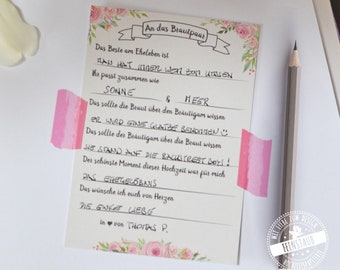 An das Brautpaar
Das Beste am Eheleben ist
MAN HAT IMMER WEN ZUM KÜSSEN
Ihr passt zusammen wie
SONNE & MEER
Das sollte die Braut über den Bräutigam wissen
ER WIRD EINE GLATZE BEKOMMEN
Das sollte der Bräutigam über die Braut wissen
SIE STAND AUF DIE BACKSTREET BOYS!
Der schönste Moment dieser Hochzeit war für mich
DAS EHEGELÖBNIS
Das wünsche ich euch von Herzen
DIE GANZE LIEBE
in ♥ von THOMAS P.